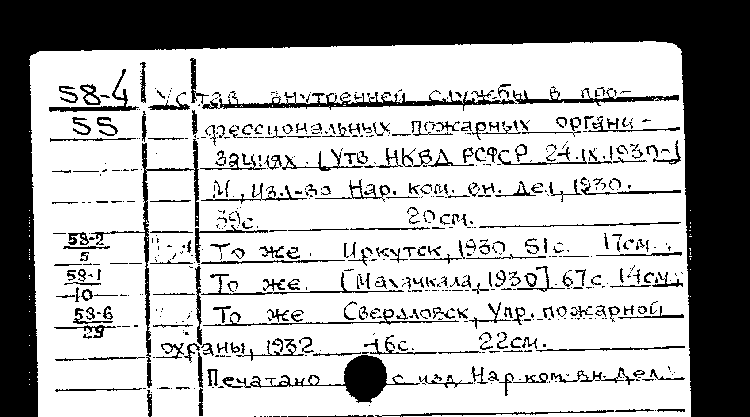 58-4 Устав внутренней службы в про-
55 фессиональных пожарных органи-
зациях. [Утв. НКВД РСФСР 24.IX.1930-]
М., Изд-во Нар. ком. вн. дел, 1930.
39с. 20см.
58-2/5 То же. Иркутск, 1930. 51с. 17см.
58-1/10 То же. [Махачкала, 1930]. 67с. 14см.
58-6/29 То же Свердловск, Упр. пожарной
охраны, 1932 16с. 22см.
Печатано с изд. Нар. ком. вн. дел.